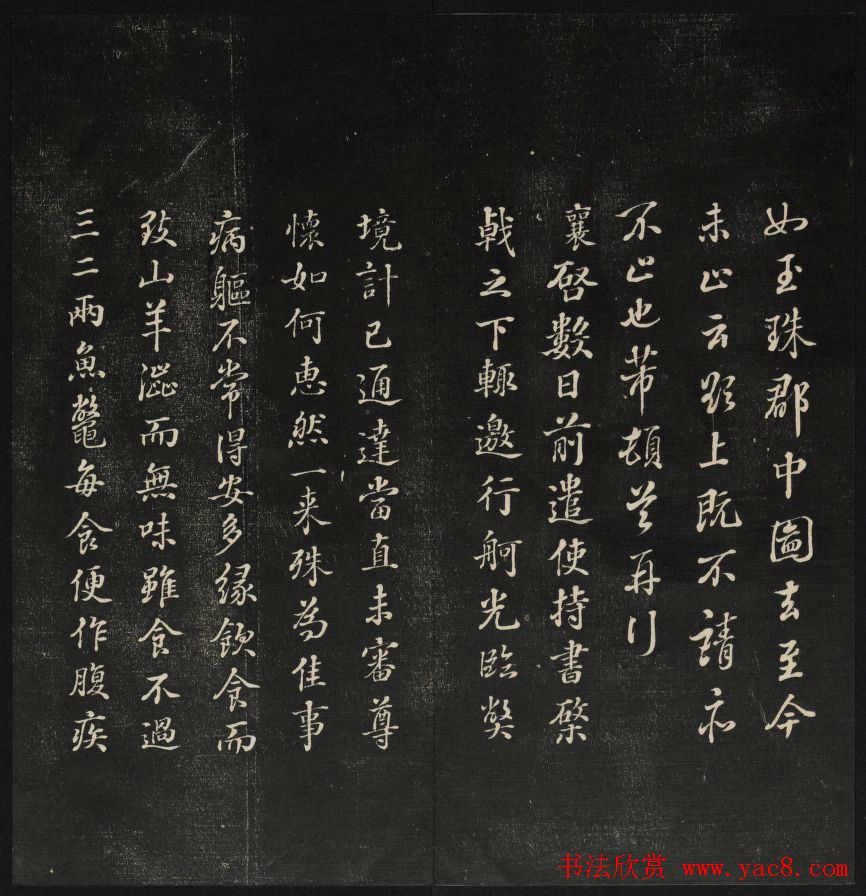 如玉珠郡中圖去至今
未止云影上既不請亦
不止也芾頓首再行
襄啓數日前遣使持書棨
戟之下輙邀行舸光臨獘
境計已通達當直未審尊
懷如何惠然一来殊為佳事
病軀不常得安多縁飲食而
致山羊澁而無味雖食不過
三二兩魚鼈每食便作腹疾
书法欣赏 www.yac8.com